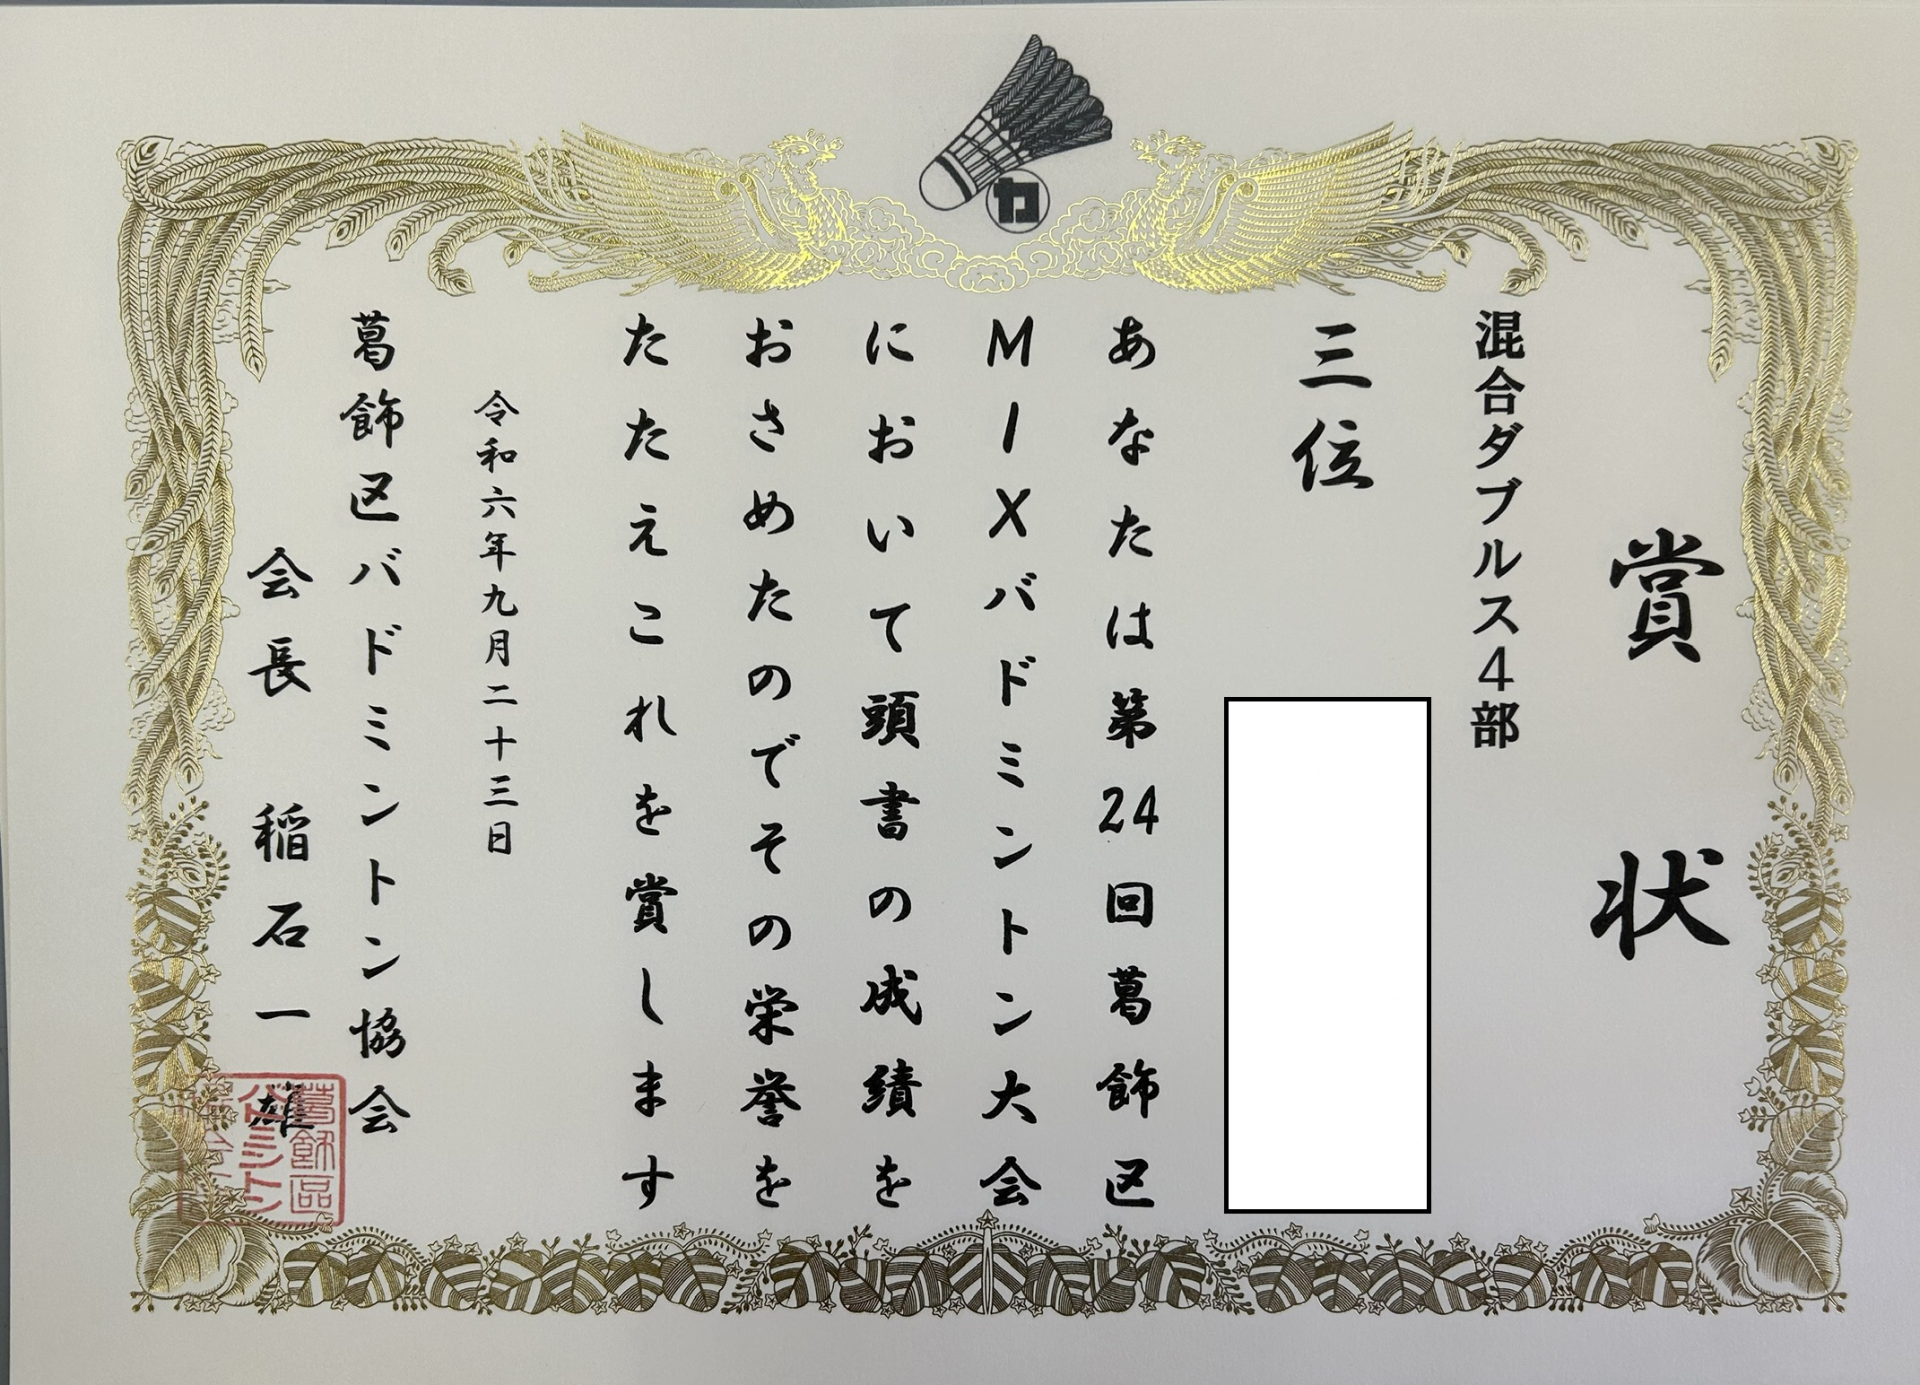 カ
賞状
混合ダブルス4部
三位
あなたは第24回葛飾区
MIXバドミントン大会
において頭書の成績を
おさめたのでその栄誉を
たたえこれを賞します
令和六年九月二十三日
葛飾区バドミントン協会
会長 稲石一雄
葛飾區
バドミントン